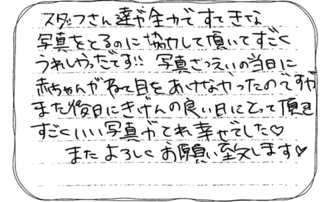 スタッフさん達が全力ですてきな
写真をとるのに協力して頂いてすごく
うれしかったです!! 写真さつえいの当日に
赤ちゃんがねて目をあけなかったのですが
また後日にきげんの良い日にとって頂き
すごくいい写真がとれ幸せでした♡
またよろしくお願い致します♡